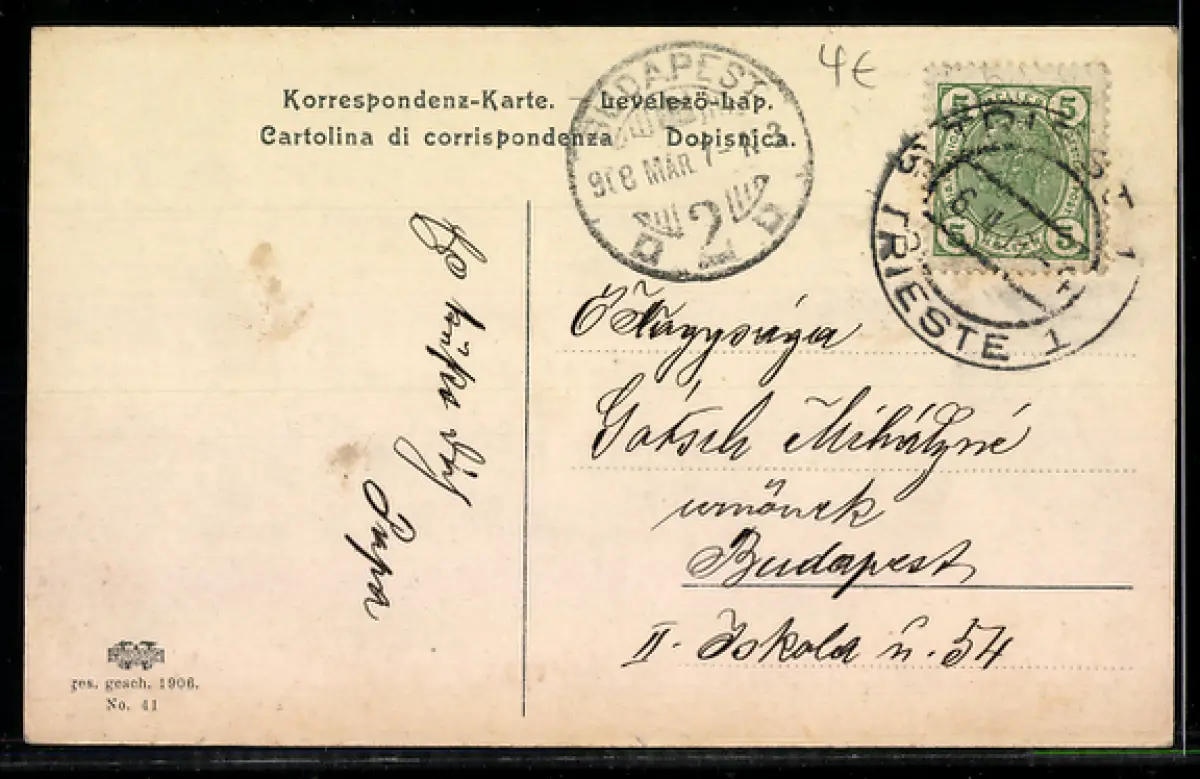 4€
Korrespondenz-Karte. – Levelező-Lap.
Cartolina di corrispondenza Dopisnica.
BUDAPEST
908 MAR 7
2
5 HELLER 5
5 5
TRIESTE 1
Ő Nagysága
Gotsch Mihályné
urnőnek
Budapest
II. Iskola u. 54
Papa
ges. gesch. 1906.
No. 41